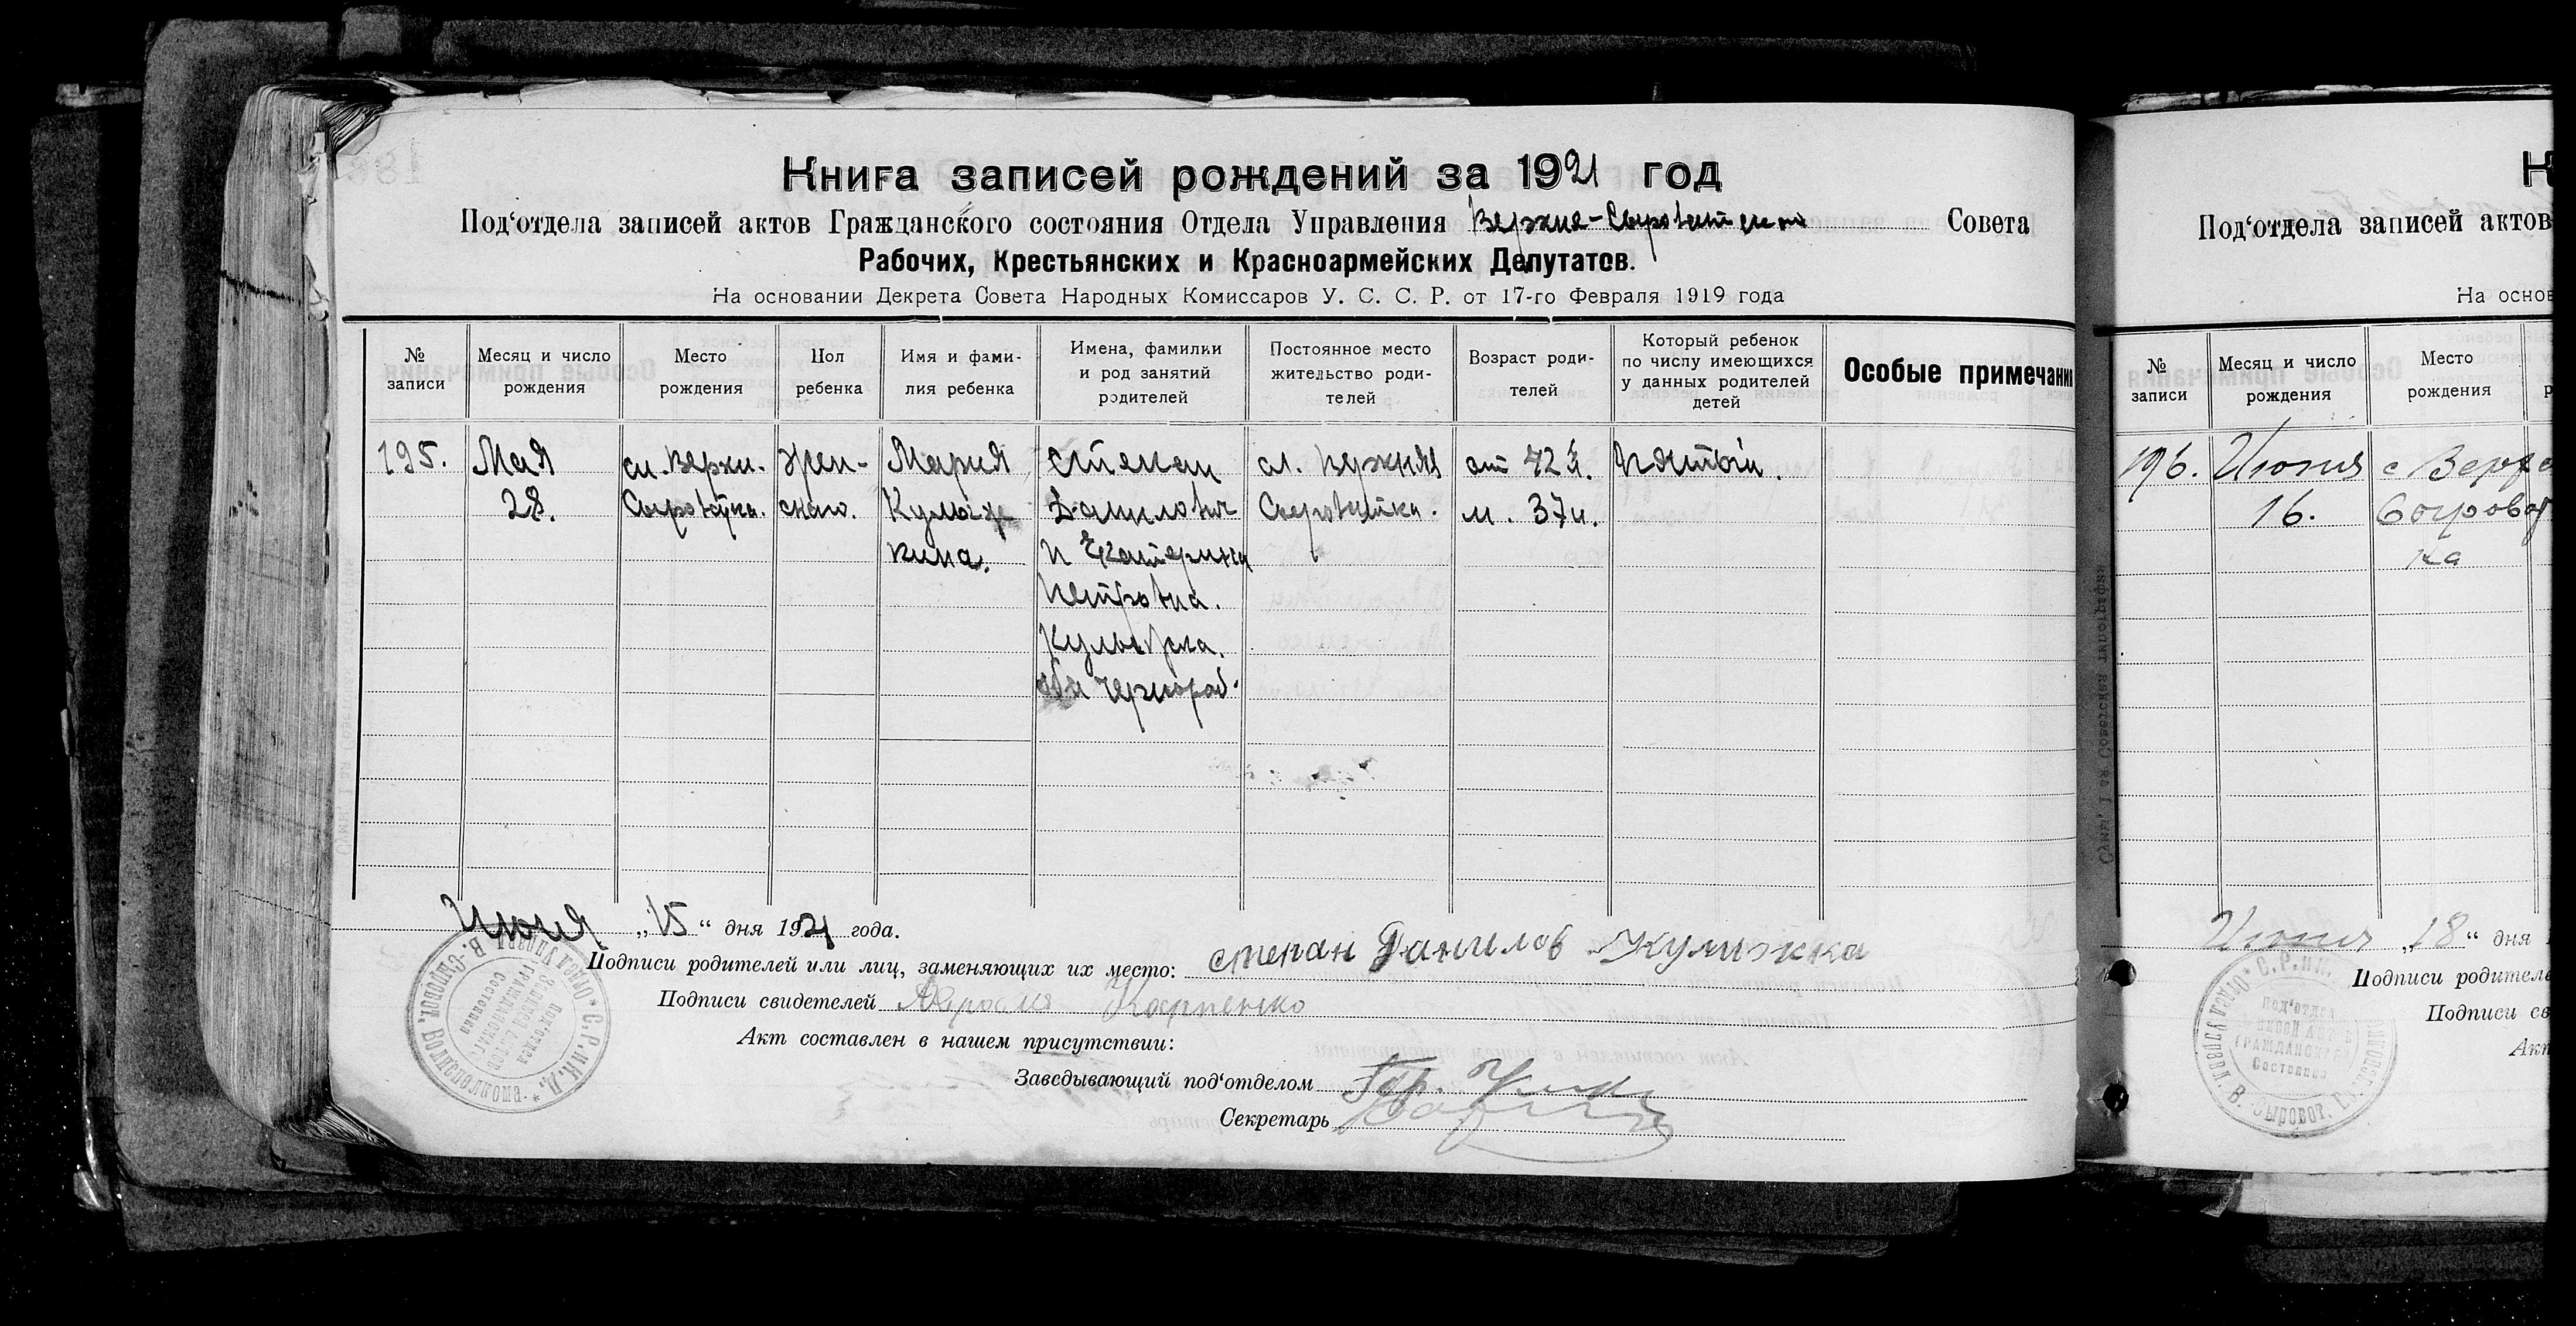 Книга записей рождений за 1921 год
Под‘отдела записей актов Гражданского состояния Отдела Управления Верхне-Сыроватской Совета
Рабочих, Крестьянских и Красноармейских Депутатов.
На основании Декрета Совета Народных Комиссаров У. С. С. Р. от 17-го Февраля 1919 года
№ записи
Месяц и число рождения
Место рождения
Пол ребенка
Имя и фами-
лия ребенка
Имена, фамилии
и род занятий
родителей
Постоянное место
жительство роди-
телей
Возраст роди-
телей
Который ребенок
по числу имеющихся
у данных родителей
детей
Особые примечани
195.
Мая
28.
сл. Верхн.
Сыроватка.
жен-
ского.
Мария
кина.
Степан
Данилович
и Екатерина
Петровна.
оба чернораб.
сл. Верхняя
Сыроватка.
от 42 л.
м. 37 л.
Пятый.
Июня „15“ дня 1921 года.
Подписи родителей или лиц, заменяющих их место: степан Данилов Кулижка
Подписи свидетелей Карпенко
Акт составлен в нашем присутствии:
Заведывающий под‘отделом
Секретарь
Под‘отдела записей актов
На основ
№ записи
Месяц и число рождения
Место рождения
196.
Июня
16.
с Верхе
Сыроват
ка
Июня „18“ дня 1
Подписи родителе
Подписи св
Акт